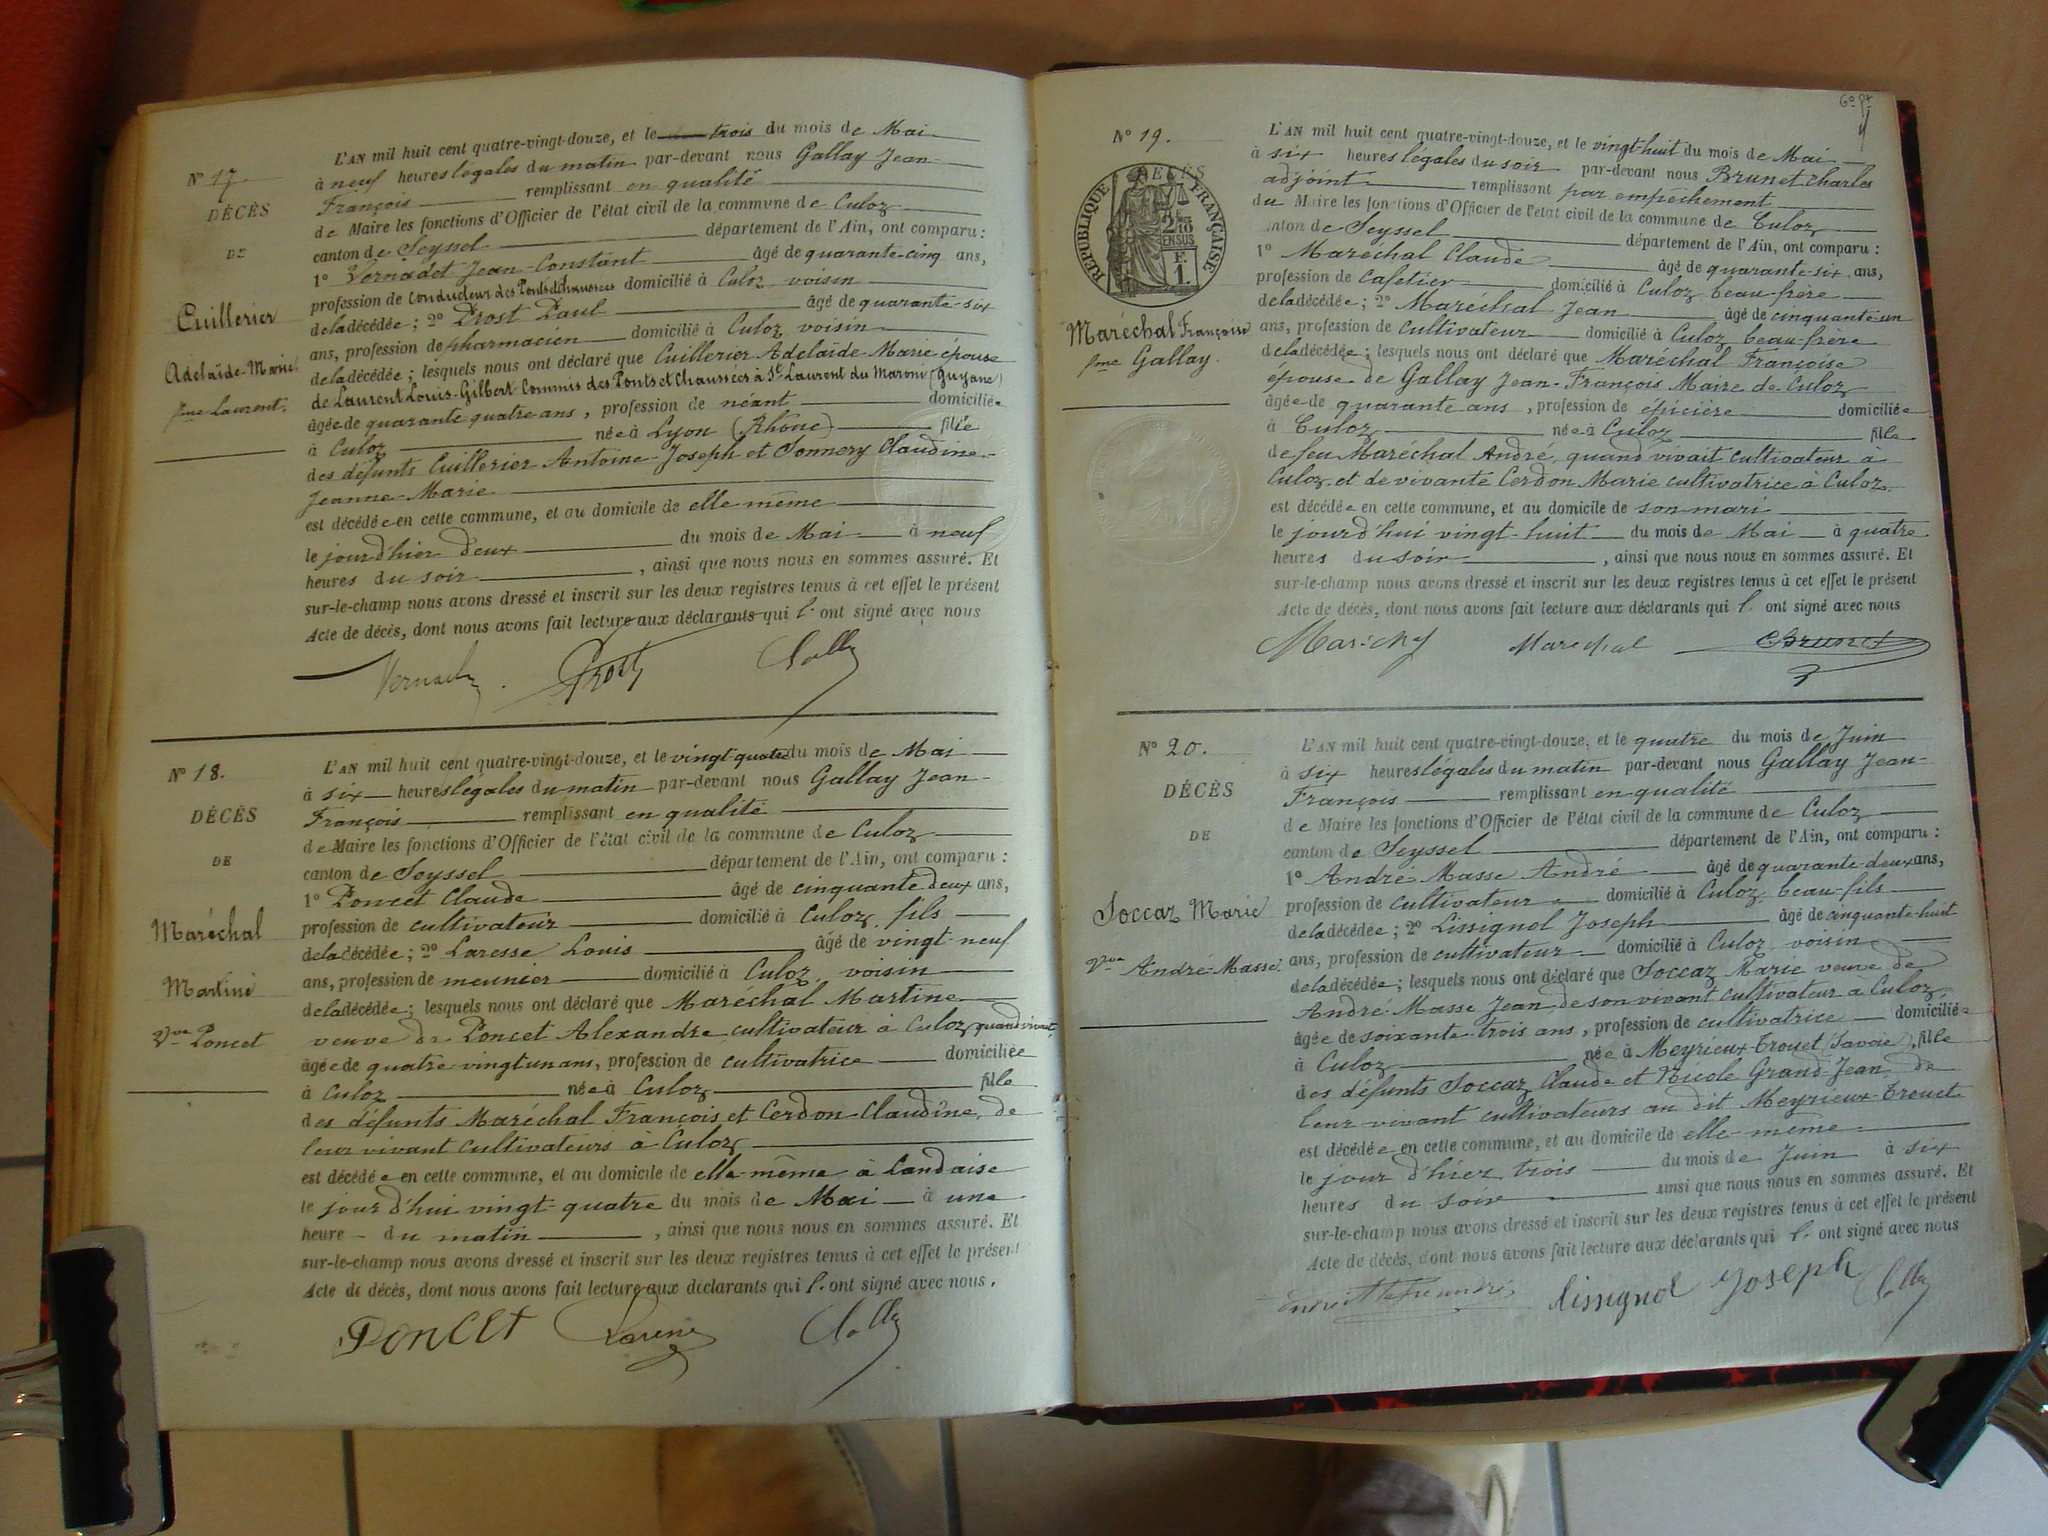 N° 17.
DÉCÈS
DE
Cuillerier
Adelaïde-Marie
fme Laurent.
L'AN mil huit cent quatre-vingt-douze, et le trois du mois de Mai
à neuf heures légales du matin par-devant nous Gallay Jean-
François remplissant en qualité
de Maire les fonctions d'Officier de l'état civil de la commune de Culoz
canton de Seyssel département de l'Ain, ont comparu :
1° Vernadet Jean-Constant âgé de quarante-cinq ans,
profession de Conducteur des Ponts et Chaussées domicilié à Culoz voisin
de la décédée ; 2° Prost Paul âgé de quarante-six
ans, profession de pharmacien domicilié à Culoz voisin
de la décédée ; lesquels nous ont déclaré que Cuillerier Adelaïde-Marie épouse
de Laurent Louis-Gilbert Commis des Ponts et Chaussées à St Laurent du Maroni (Guyane)
âgée de quarante quatre ans, profession de néant domiciliée
à Culoz née à Lyon (Rhône) fille
des défunts Cuillerier Antoine-Joseph et Sonnery Claudine-
Jeanne-Marie
est décédée en cette commune, et au domicile de elle même
le jour d'hier deux du mois de Mai à neuf
heures du soir, ainsi que nous nous en sommes assuré. Et
sur-le-champ nous avons dressé et inscrit sur les deux registres tenus à cet effet le présent
Acte de décès, dont nous avons fait lecture aux déclarants qui l' ont signé avec nous
Prost
N° 18.
DÉCÈS
DE
Maréchal
Martine
Vve Poncet
L'AN mil huit cent quatre-vingt-douze, et le vingt-quatre du mois de Mai
à six heures légales du matin par-devant nous Gallay Jean-
François remplissant en qualité
de Maire les fonctions d'Officier de l'état civil de la commune de Culoz
canton de Seyssel département de l'Ain, ont comparu :
1° Poncet Claude âgé de cinquante deux ans,
profession de cultivateur domicilié à Culoz, fils
de la décédée ; 2° Laresse Louis âgé de vingt-neuf
ans, profession de meunier domicilié à Culoz, voisin
de la décédée ; lesquels nous ont déclaré que Maréchal Martine
veuve de Poncet Alexandre cultivateur à Culoz, quand vivait
âgée de quatre vingt un ans, profession de cultivatrice domiciliée
à Culoz née à Culoz fille
des défunts Maréchal François et Cerdon Claudine, de
leur vivant cultivateurs à Culoz
est décédée en cette commune, et au domicile de elle-même à Landaise
le jour d'hui vingt-quatre du mois de Mai à une
heure du matin, ainsi que nous nous en sommes assuré. Et
sur-le-champ nous avons dressé et inscrit sur les deux registres tenus à cet effet le présent
Acte de décès, dont nous avons fait lecture aux déclarants qui l' ont signé avec nous.
PONCET
N° 19.
DÉCÈS
RÉPUBLIQUE FRANÇAISE
2/10 EN SUS
F. 1.
Maréchal Françoise
fme Gallay.
L'AN mil huit cent quatre-vingt-douze, et le vingt-huit du mois de Mai
à six heures légales du soir par-devant nous Brunet Charles
adjoint remplissant par empêchement
du Maire les fonctions d'Officier de l'état civil de la commune de Culoz
canton de Seyssel département de l'Ain, ont comparu :
1° Maréchal Claude âgé de quarante-six ans,
profession de Cafetier domicilié à Culoz, beau-frère
de la décédée ; 2° Maréchal Jean âgé de cinquante-un
ans, profession de cultivateur domicilié à Culoz, beau-frère
de la décédée ; lesquels nous ont déclaré que Maréchal Françoise
épouse de Gallay Jean-François Maire de Culoz
âgée de quarante ans, profession de épicière domiciliée
à Culoz née à Culoz fille
de feu Maréchal André, quand vivait cultivateur à
Culoz et de vivante Cerdon Marie cultivatrice à Culoz
est décédée en cette commune, et au domicile de son mari
le jour d'hui vingt-huit du mois de Mai à quatre
heures du soir, ainsi que nous nous en sommes assuré. Et
sur-le-champ nous avons dressé et inscrit sur les deux registres tenus à cet effet le présent
Acte de décès, dont nous avons fait lecture aux déclarants qui l' ont signé avec nous
Marechal CBrunet
N° 20.
DÉCÈS
DE
Soccaz Marie
Vve André-Masse.
L'AN mil huit cent quatre-vingt-douze, et le quatre du mois de Juin
à six heures légales du matin par-devant nous Gallay Jean-
François remplissant en qualité
de Maire les fonctions d'Officier de l'état civil de la commune de Culoz
canton de Seyssel département de l'Ain, ont comparu :
1° André-Masse André âgé de quarante-deux ans,
profession de cultivateur domicilié à Culoz, beau-fils
de la décédée ; 2° Lissignol Joseph âgé de cinquante-huit
ans, profession de cultivateur domicilié à Culoz voisin
de la décédée ; lesquels nous ont déclaré que Soccaz Marie veuve de
André-Masse Jean, de son vivant cultivateur à Culoz
âgée de soixante-trois ans, profession de cultivatrice domiciliée
à Culoz née à Meyrieux-Trouet (Savoie), fille
des défunts Soccaz Claude et Nicole Grand-Jean, de
leur vivant cultivateurs au dit Meyrieux-Trouet
est décédée en cette commune, et au domicile de elle-même
le jour d'hier trois du mois de Juin à six
heures du soir ainsi que nous nous en sommes assuré. Et
sur-le-champ nous avons dressé et inscrit sur les deux registres tenus à cet effet le présent
Acte de décès, dont nous avons fait lecture aux déclarants qui l' ont signé avec nous
lissignol Joseph